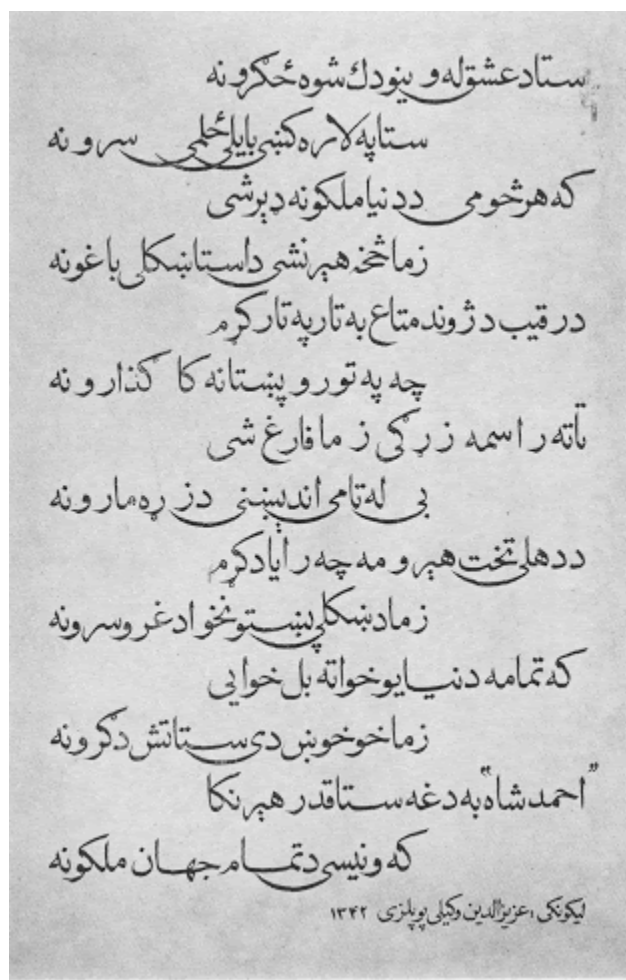 ستا د عشق له وینو ډك شوه ځګرونه
ستا په لاره کښی بایلی ځلمی سرونه
که هر څو می د دنیا ملکونه ډېر شی
زما څخه هېر نشی دا ستا ښکلی باغونه
د رقیب د ژوند متاع به تار په تار کړم
چه په تورو پښتانه کا ګذارونه
تا ته راسمه زړګی زما فارغ شی
بی له تا می اندېښنی د زړه مارونه
د دهلی تخت هېرومه چه را یاد کړم
زما د ښکلی پښتونخوا د غرو سرونه
که تمامه دنیا یو خوا ته بل خوا یی
زما خو خوښ دی ستا تش ډګرونه
"احمد شاه" به دغه ستا قدر هېر نکا
که ونیسی د تمام جهان ملکونه
لیکونکی: عزیزالدین وکیلی پوپلزی ۱۳۴۲